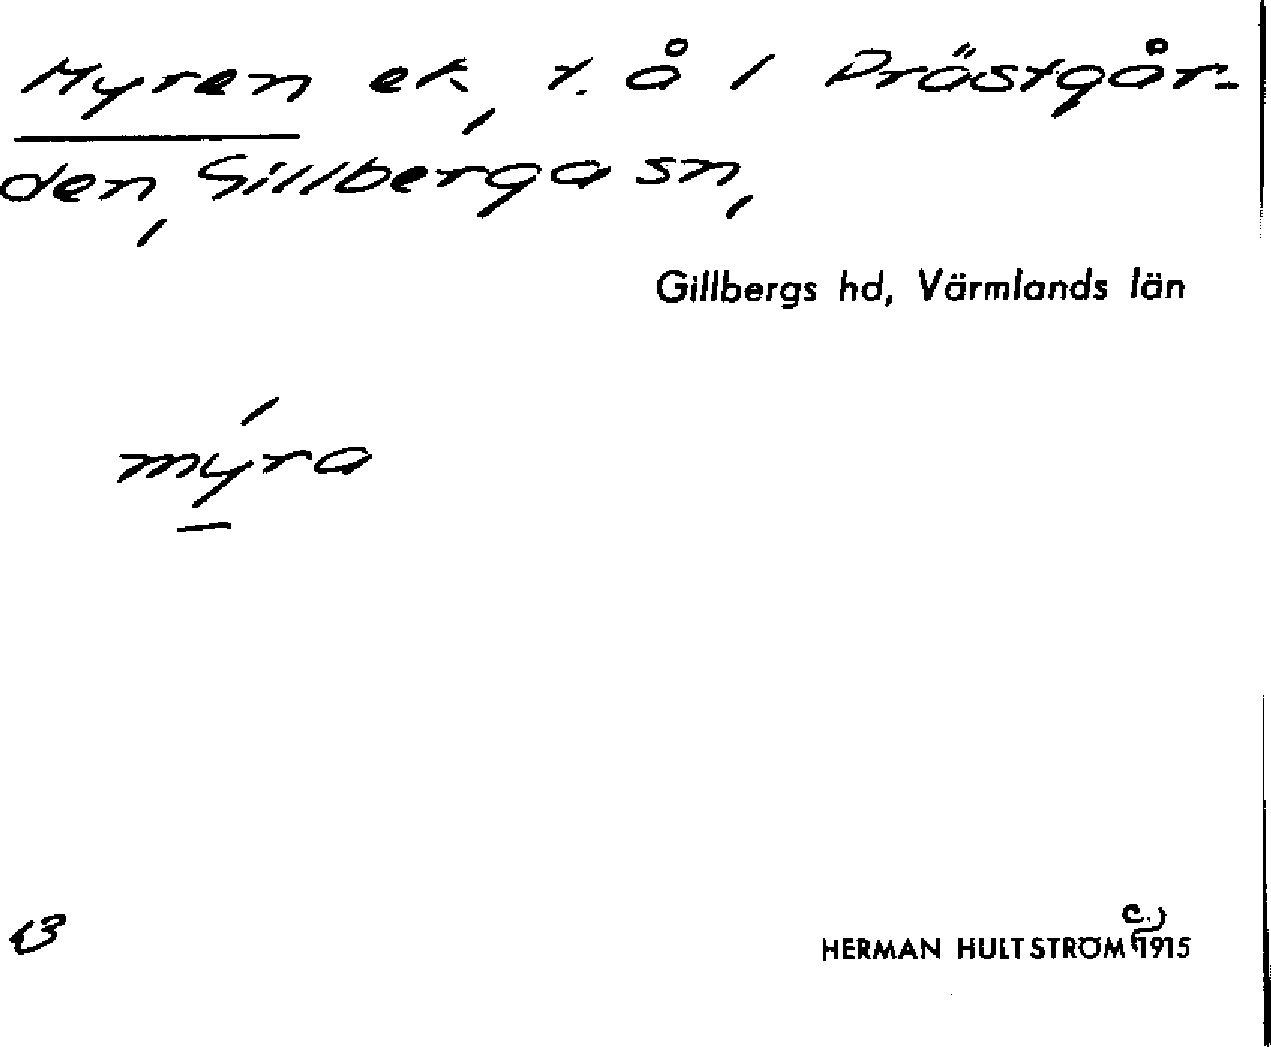 Myren ek, t. å 1 Prästgår-
den, Gillberga sn,
Gillbergs hd, Värmlands län
mýra
13
HERMAN HULTSTRÖM c. 1915